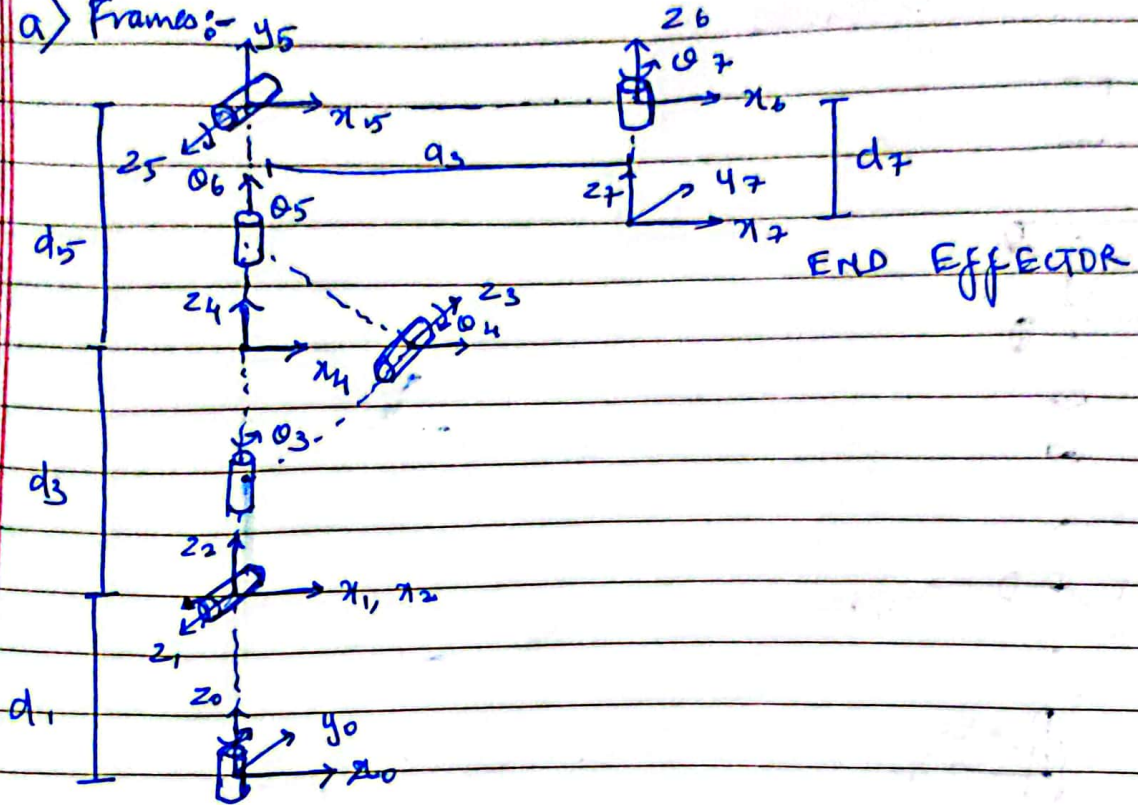 a) Frames:-
y5
z6
θ7
x5
x6
z5
a3
d7
θ6
z7
y7
θ5
x7
d5
END EFFECTOR
z4
z3
θ4
x4
θ3
d3
z2
x1, x2
z1
z0
d1
y0
x0